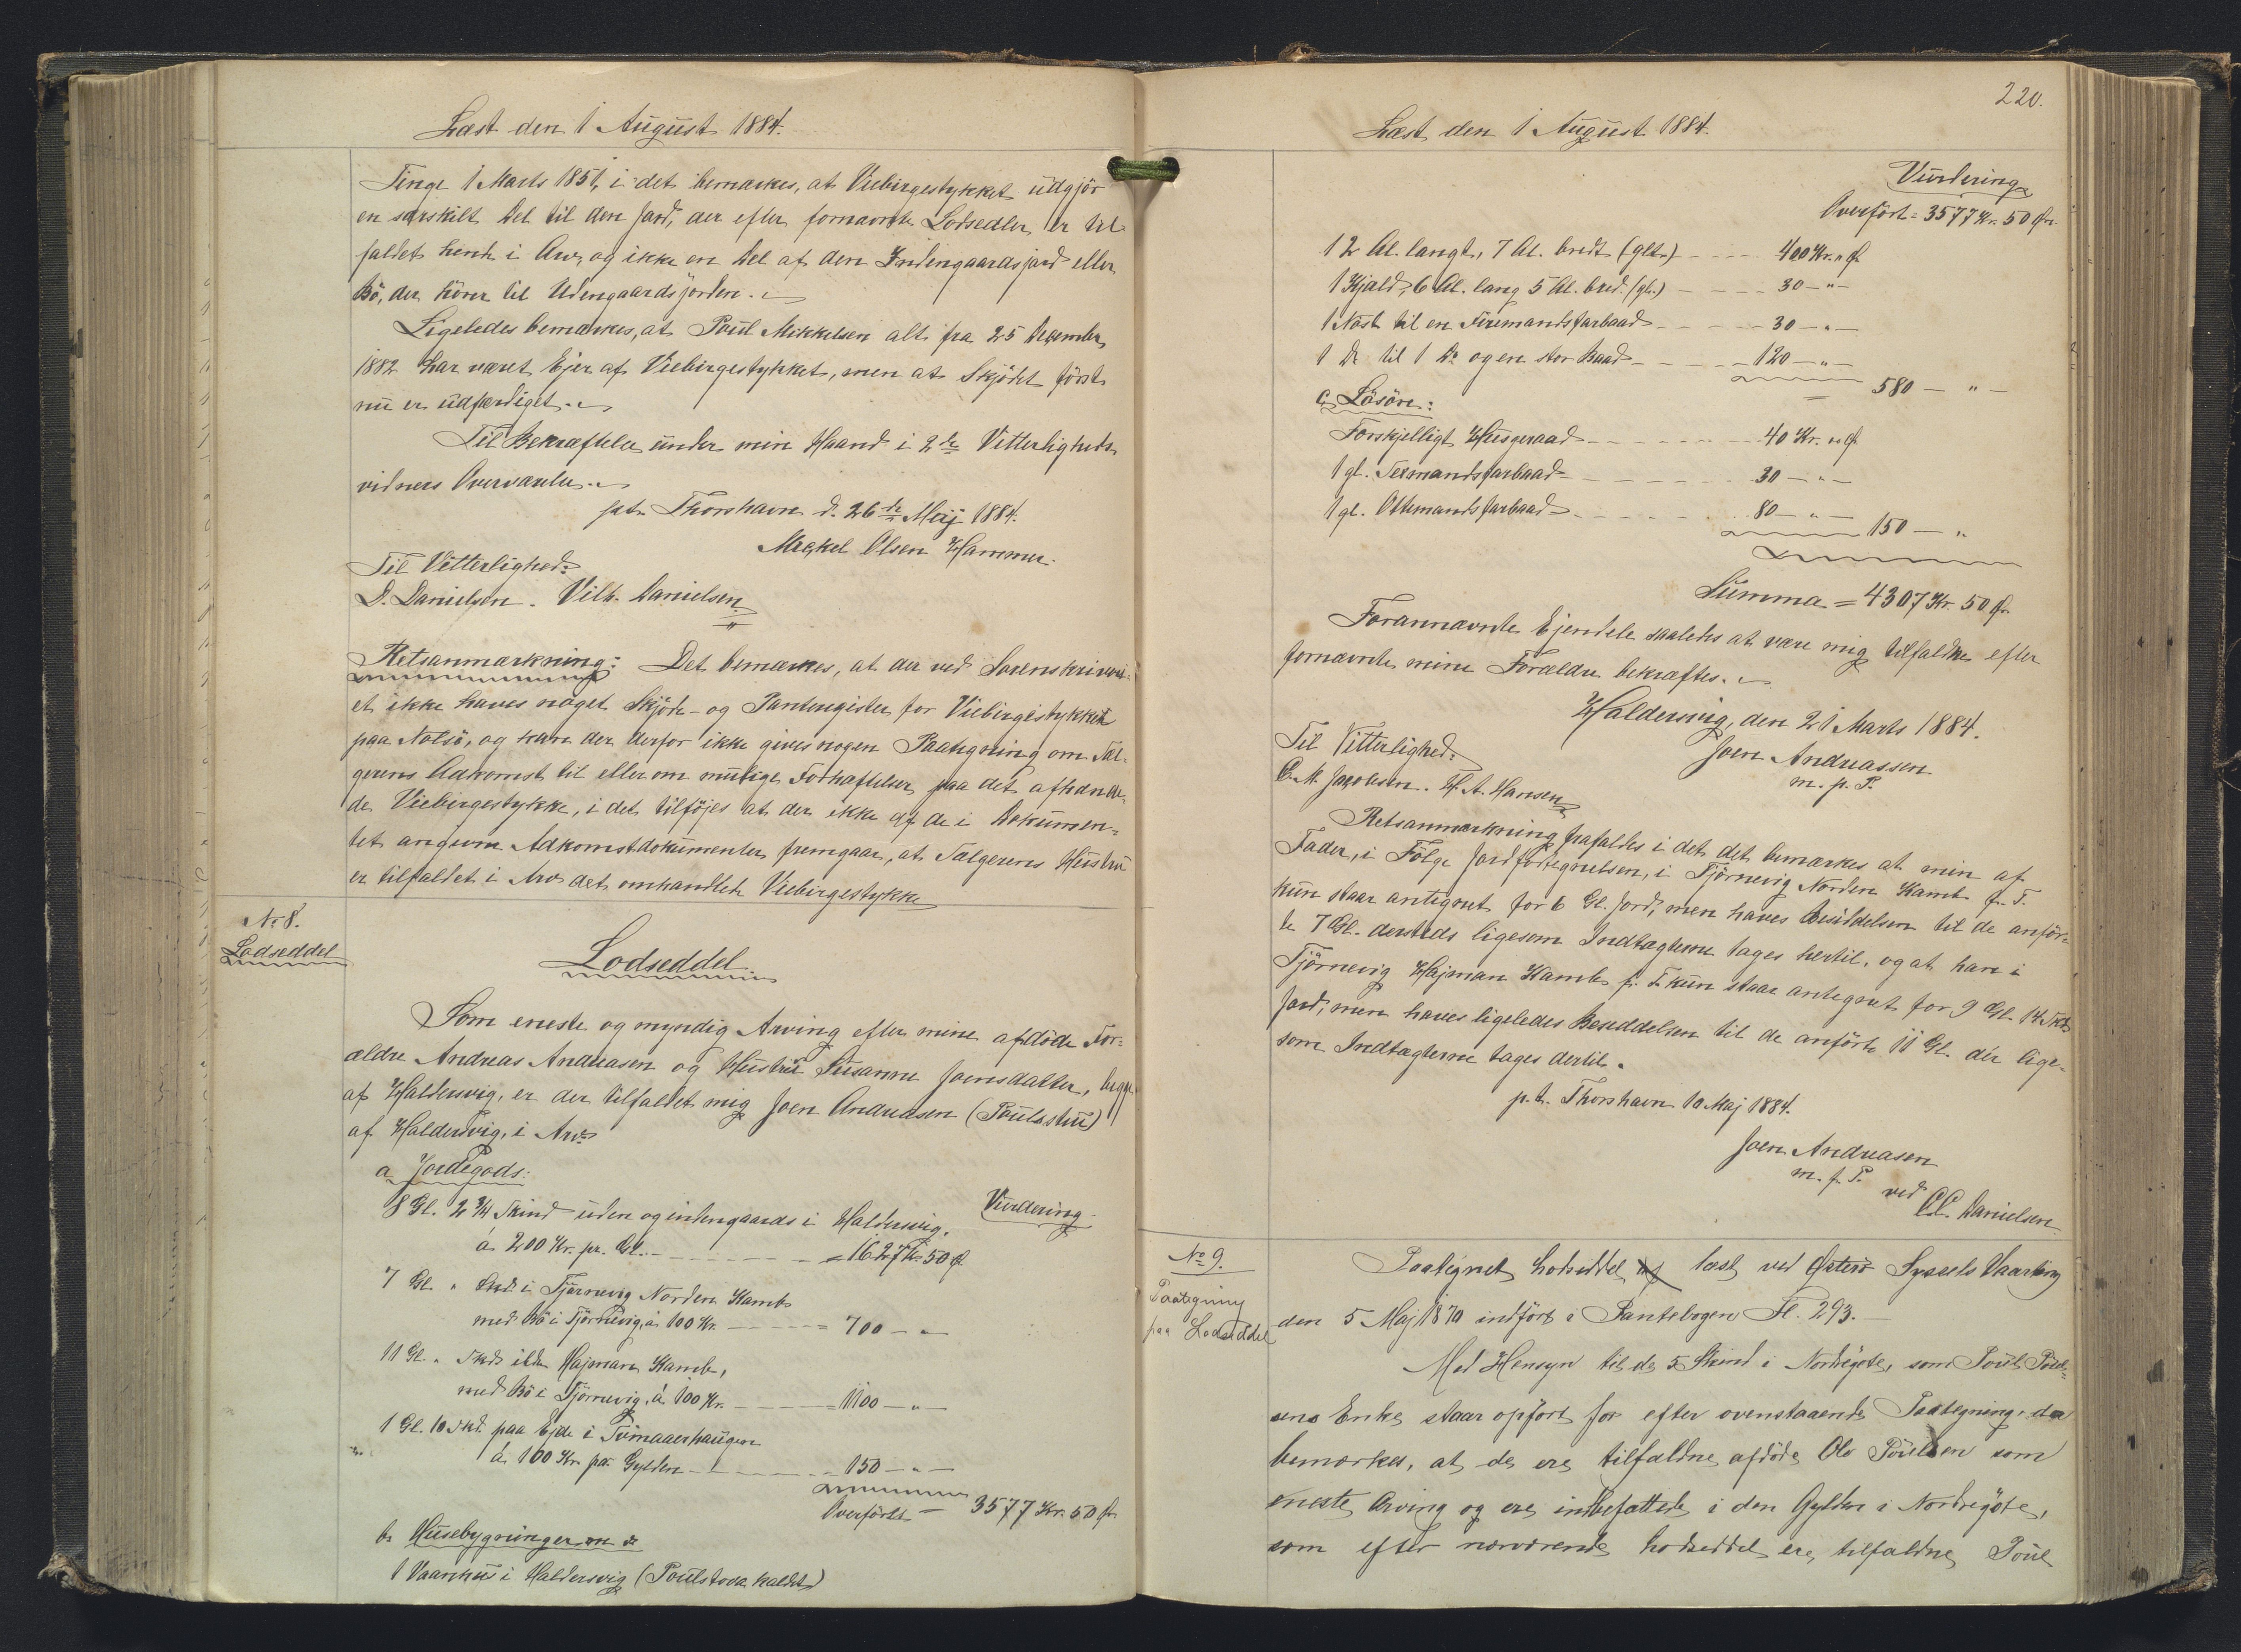 Læst den 1 August 1884.
Tinge 1 Marts 1851, i det bemærkes, at Viebirgestykket udgjör
en særskilt Del til den Jord, der efter fornævnte Lodsedler er til-
faldet hende i Arv, og ikke en Del af den Indengaardsjord eller
Bö, der hörer til Udengaardsjorden.
Ligeledes bemærkes, at Poul Mikkelsen alt fra 25 December
1882 har været Ejer af Viebirgestykket, men at Skjödet först
nu er udfærdiget.
Til Bekræftelse under min Haand i 2de Vitterligheds
vidners Overværelse.
p.t. Thorshavn d. 26de Maj 1884.
Mickel Olsen Hammer.
Til Vitterlighed:
D. Danielsen. Vilh. Danielsen
Retsanmærkning: Det bemærkes, at der ved Sorenskriveri-
et ikke haves noget Skjöde- og Panteregister for Viebirgestykket
paa Nolsö, og kan der derfor ikke gives nogen Paategning om Sæl-
gerens Adkomst til eller om mulige Forhæftelser paa det afhænde-
de Viebirgestykke, i det tilföjes at der ikke af de i Dokumen-
tet angivne Adkomstdokumenter fremgaar, at Sælgerens Hustru
er tilfaldet i Arv det omhandlede Viebirgestykke
No 8.
Lodseddel
Lodseddel.
Som eneste og myndig Arving efter mine afdöde For-
ældre Andreas Andreasen og Hustru Susanne Joensdatter, begge
af Haldersvig, er der tilfaldet mig Joen Andreasen (Poulsstu)
af Haldersvig, i Arv:
a Jordegods:
Vurdering
8 Gl. 2 3/4 Skind uden og indengaards i Haldersvig,
á 200 Kr. pr. Gl. = 1627 Kr. 50 Ø.
7 Gl. " Skd. i Tjörnevig Norden Kambs
med Bö i Tjörnevig, á 100 Kr. = 700 - "
11 Gl. " Skd. ibdm Hajman Kambs,
med Bö i Tjörnevig, á 100 Kr. = 1100 - " -
1 Gl. 10 Skd. paa Ejde i Tumaaerhaugen
á 100 Kr. pr. Gylden - 150 - " -
Overföres = 3577 Kr. 50 Ør.
b. Husebygninger
1 Vaanhus i Haldersvig (Poulstova kaldet)
220.
Læst den 1 August 1884.
Vurdering
Overfört = 3577 Kr. 50 Ør.
12 Al. langt, 7 Al. bredt (glt.) 400 Kr. " Ø.
1 Hjald, 6 Al. lang 5 Al. bred. (gl.) 30 - " -
1 Nöst til en Firemandsfarbaad 30 - " -
1 Do til 1 Do og en stor Baad 120 - " -
580 - " -
c. Lösöre:
Forskjelligt Husgeraad 40 Kr. " Ø.
1 gl. Sexmandsfarbaad 30 - " -
1 gl. Ottemandsfarbaad 80 - " -
150 - "
Summa = 4307 Kr. 50 Ør.
Forannævnte Ejendele saaledes at være mig tilfaldne efter
fornævnte mine Forældre bekræftes.
Haldersvig, den 21 Marts 1884.
Joen Andreassen
m. f. P.
Til Vitterlighed:
C. M. Jacobsen. H. A. Hansen
Retsanmærkning frafaldes i det det bemærkes at min af.
Fader, i Fölge Jordfortegnelsen, i Tjörnevig Norden Kambs f. T.
kun staar antegnet for 6 Gl. Jord, men haves Besiddelsen til de anför-
te 7 Gl. dersteds ligesom Indtægterne tages hertil, og at han i
Tjörnevig Hajman Kambs f. T. kun staar antegnet for 9 Gl. 14 Skd.
Jord, men haves ligeledes Besiddelsen til de anförte 11 Gl. dér lige-
som Indtægterne tages dertil.
p.t. Thorshavn 10 Maj 1884.
Joen Andreasen
m. f. P.
ved
C. C. Danielsen
No 9.
Paategning
paa Lodseddel
Paategnet Lodseddel læst ved Østerö Syssels Vaarting
den 5 Maj 1870 indfört i Pantebogen Fl. 293.
Med Hensyn til de 5 Skind i Nordregöte, som Poul Poul-
sens Enke staar opfört for efter ovenstaaende Paategning, da
bemærkes, at de ere tilfaldne afdöde Ole Poulsen som
eneste Arving og ere indbefattede i den Gylden i Nordregöte,
som efter nærværende Lodseddel ere tilfaldne Poul